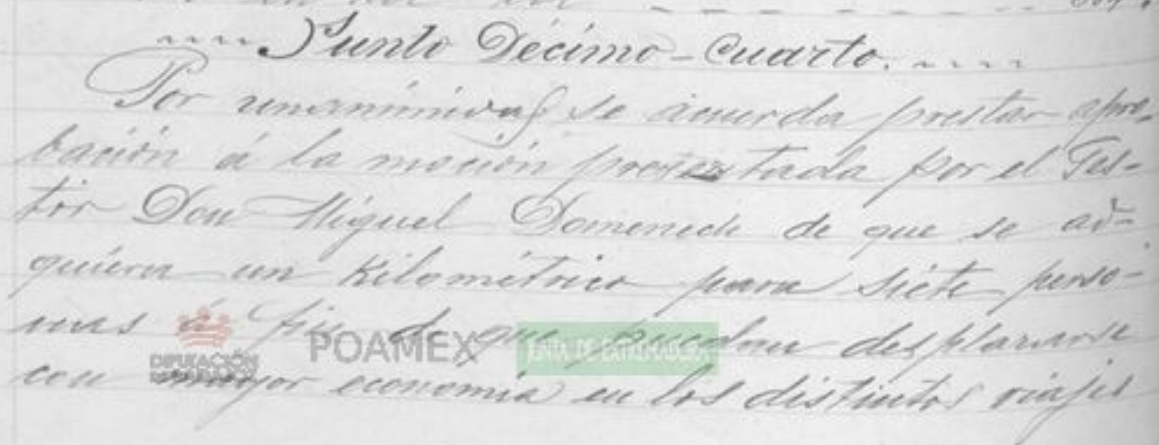 Punto Décimo-Cuarto.
Por unanimidad se acuerda prestar apro-
bación á la moción presentada por el Ges-
tor Don Miguel Domenech de que se ad-
quiera un Kilométrico para siete perso-
nas á fin de que puedan desplazarse
con mayor economia en los distintos viajes
DIPUTACIÓN
DE BADAJOZ
POAMEX
JUNTA DE EXTREMADURA